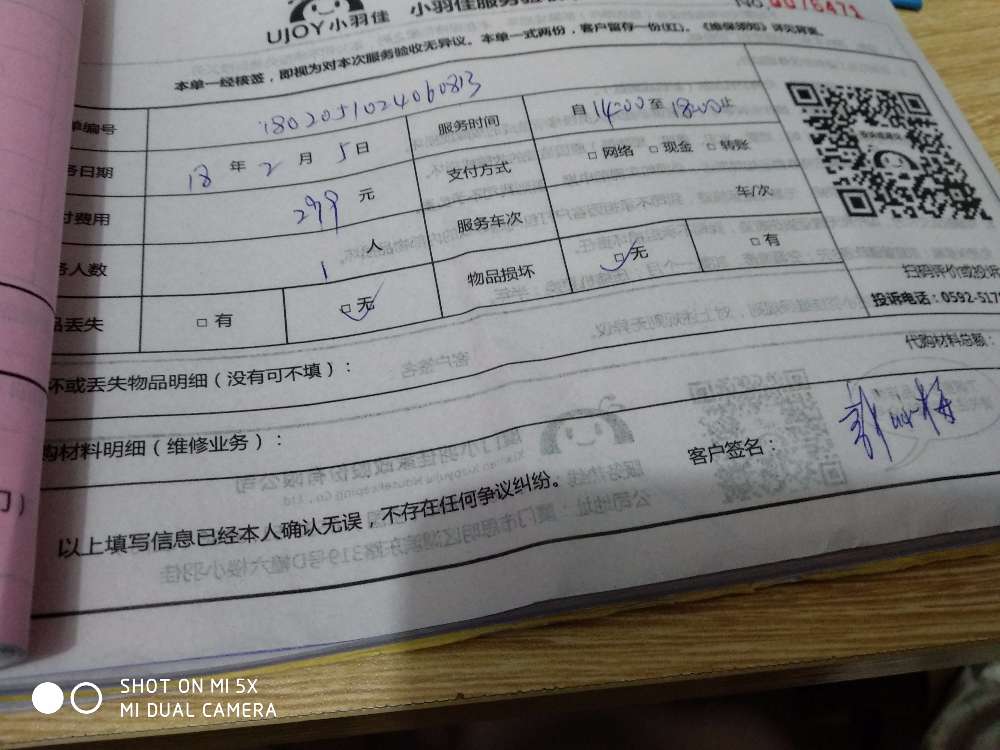 UJOY小羽佳 小羽佳服务验
NO. 0075471
本单一经核签，即视为对本次服务验收无异议。本单一式两份，客户留存一份(红)。《维保须知》详见背面。
单编号 1802051024060813 服务时间 自 14:00 至 18:00 止
务日期 18 年 2 月 5 日 支付方式 □ 网络 □ 现金 □ 转账
付费用 299 元 服务车次 车/次
务人数 1 人 物品损坏 □ 无 □ 有
品丢失 □ 有 □ 无
扫码评价或投诉
投诉电话：0592-517
坏或丢失物品明细（没有可不填）：
代购材料总额：
购材料明细（维修业务）：
客户签名：
以上填写信息已经本人确认无误，不存在任何争议纠纷。
SHOT ON MI 5X
MI DUAL CAMERA